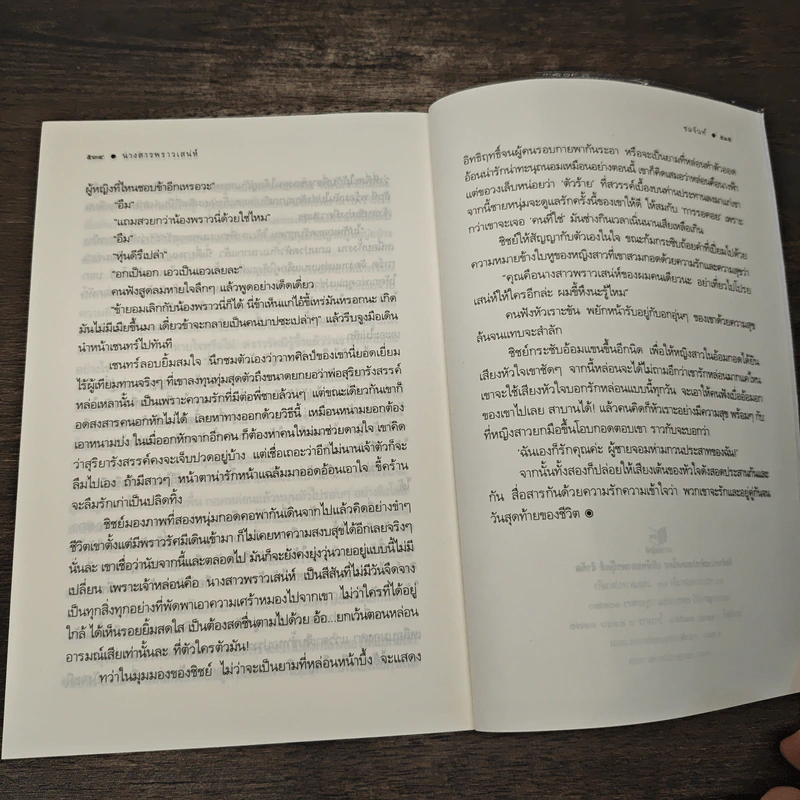 ๕๓๔ ● นางสาวพราวเสน่ห์
ผู้หญิงที่ไหนชอบข้าอีกเหรอวะ"
"อืม"
"แถมสวยกว่าน้องพราวนี่ด้วยใช่ไหม"
"อืม"
"หุ่นดีรึเปล่า"
"อกเป็นอก เอวเป็นเอวเลยละ"
คนฟังสูดลมหายใจลึกๆ แล้วพูดอย่างเด็ดเดี่ยว
"ข้ายอมเลิกกับน้องพราวนี่ก็ได้ นี่ข้าเห็นแก่ไอ้ขี้เหร่มันหรอกนะ เกิด
มันไม่มีเมียขึ้นมา เดี๋ยวข้าจะกลายเป็นคนบาปซะเปล่าๆ" แล้วรีบจูงมือเดิน
นำหน้าเซนทร์ไปทันที
เซนทร์ลอบยิ้มสมใจ นึกชมตัวเองว่าวาทศิลป์ของเขานี่ยอดเยี่ยม
ไร้ผู้เทียมทานจริงๆ ที่เขาลงทุนทุ่มสุดตัวถึงขนาดยกยอว่าพ่อสุริยารังสรรค์
หล่อเหลานั้น เป็นเพราะความรักที่มีต่อพี่ชายล้วนๆ แต่ขณะเดียวกันเขาก็
อดสงสารคนอกหักไม่ได้ เลยหาทางออกด้วยวิธีนี้ เหมือนหนามยอกต้อง
เอาหนามบ่ง ในเมื่ออกหักจากอีกคน ก็ต้องหาคนใหม่มาช่วยดามใจ เขาคิด
ว่าสุริยารังสรรค์คงจะเจ็บปวดอยู่บ้าง แต่เชื่อเถอะว่าอีกไม่นานเจ้าตัวก็จะ
ลืมไปเอง ถ้ามีสาวๆ หน้าตาน่ารักหน้าแฉล้มมาออดอ้อนเอาใจ ขี้คร้าน
จะลืมรักเก่าเป็นปลิดทิ้ง
ชิชย์มองภาพที่สองหนุ่มกอดคอพากันเดินจากไปแล้วคิดอย่างขำๆ
ชีวิตเขาตั้งแต่มีพราวรัศมีเดินเข้ามา ก็ไม่เคยหาความสงบสุขได้อีกเลยจริงๆ
นั่นละ เขาเชื่อว่านับจากนี้และตลอดไป มันก็จะยังคงยุ่งวุ่นวายอยู่แบบนี้ไม่มี
เปลี่ยน เพราะเจ้าหล่อนคือ นางสาวพราวเสน่ห์ เป็นสีสันที่ไม่มีวันจืดจาง
เป็นทุกสิ่งทุกอย่างที่พัดพาเอาความเศร้าหมองไปจากเขา ไม่ว่าใครที่ได้อยู่
ใกล้ ได้เห็นรอยยิ้มสดใส เป็นต้องสดชื่นตามไปด้วย อ้อ...ยกเว้นตอนหล่อน
อารมณ์เสียเท่านั้นละ ที่ตัวใครตัวมัน!
ทว่าในมุมมองของชิชย์ ไม่ว่าจะเป็นยามที่หล่อนหน้าบึ้ง จะแสดง
● ๕๓๕
อิทธิฤทธิ์จนผู้คนรอบกายพากันระอา หรือจะเป็นยามที่หล่อนทำตัวออด
อ้อนน่ารักน่าทะนุถนอมเหมือนอย่างตอนนี้ เขาก็คิดเสมอว่าหล่อนคือนางฟ้า
แต่ขอวงเล็บหน่อยว่า 'ตัวร้าย' ที่สวรรค์เบื้องบนท่านประทานลงมาแก่เขา
จากนี้ชายหนุ่มจะดูแลรักครั้งนี้ของเขาให้ดี ให้สมกับ 'การรอคอย' เพราะ
กว่าเขาจะเจอ 'คนที่ใช่' มันช่างกินเวลาเนิ่นนานเสียเหลือเกิน
ชิชย์ให้สัญญากับตัวเองในใจ ขณะก้มกระซิบถ้อยคำที่เปี่ยมไปด้วย
ความหมายข้างใบหูของหญิงสาวที่เขาสวมกอดด้วยความรักและความสุขว่า
"คุณคือนางสาวพราวเสน่ห์ของผมคนเดียวนะ อย่าเที่ยวไปโปรย
เสน่ห์ให้ใครอีกล่ะ ผมขี้หึงนะรู้ไหม"
คนฟังหัวเราะขัน พยักหน้ารับอยู่กับอกอุ่นๆ ของเขาด้วยความสุข
ล้นจนแทบจะสำลัก
ชิชย์กระชับอ้อมแขนขึ้นอีกนิด เพื่อให้หญิงสาวในอ้อมกอดได้ยิน
เสียงหัวใจเขาชัดๆ จากนี้หล่อนจะได้ไม่ถามอีกว่าเขารักหล่อนมากแค่ไหน
เขาจะใช้เสียงหัวใจบอกรักหล่อนแบบนี้ทุกวัน จะเอาให้คนฟังเบื่ออ้อมอก
ของเขาไปเลย สาบานได้! แล้วคนคิดก็หัวเราะอย่างมีความสุข พร้อมๆ กับ
ที่หญิงสาวยกมือขึ้นโอบกอดตอบเขา ราวกับจะบอกว่า
'ฉันเองก็รักคุณค่ะ ผู้ชายจอมห่ามกวนประสาทของฉัน!'
จากนั้นทั้งสองก็ปล่อยให้เสียงเต้นของหัวใจดังสอดประสานกันและ
กัน สื่อสารกันด้วยความรักความเข้าใจว่า พวกเขาจะรักและอยู่คู่กันจน
วันสุดท้ายของชีวิต ◉